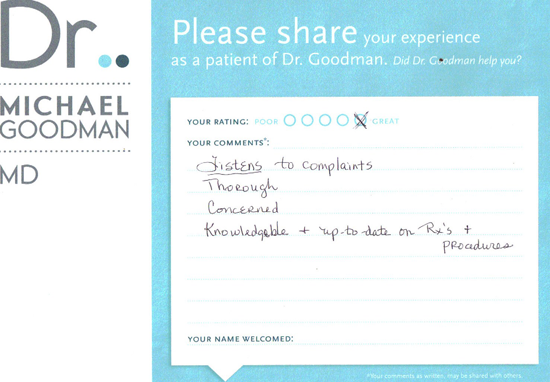 Dr..
MICHAEL
GOODMAN
MD
Please share your experience
as a patient of Dr. Goodman. Did Dr. Goodman help you?
YOUR RATING: POOR GREAT
YOUR COMMENTS*:
Listens to complaints
Thorough
Concerned
Knowledgable + up-to-date on Rx's +
procdures
YOUR NAME WELCOMED:
*Your comments as written, may be shared with others.